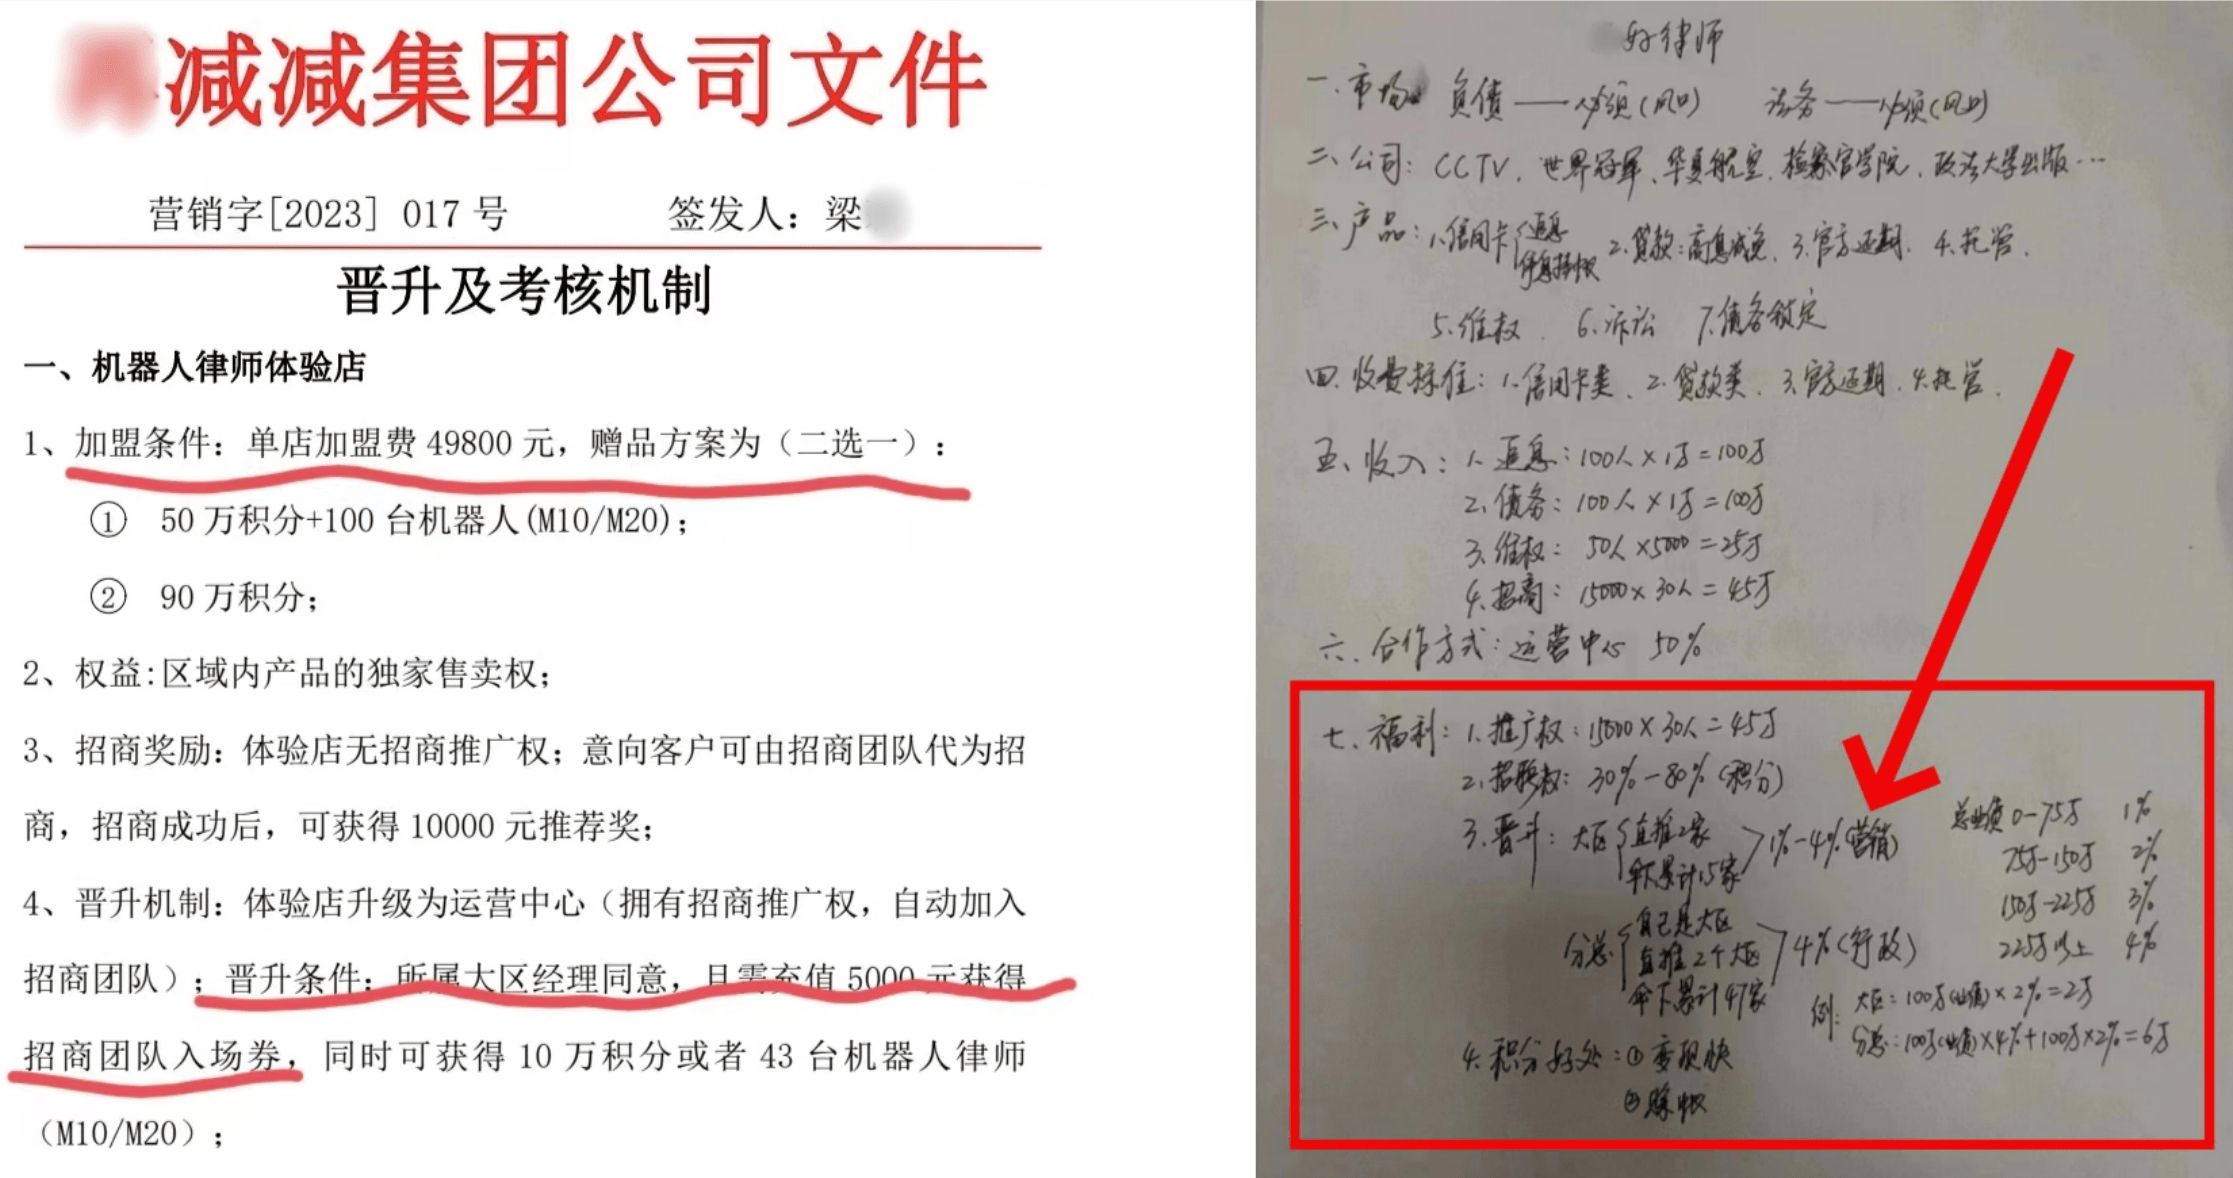 减减集团公司文件
营销字[2023] 017 号 签发人：梁
晋升及考核机制
一、机器人律师体验店
1、加盟条件：单店加盟费 49800 元，赠品方案为（二选一）：
① 50 万积分+100 台机器人(M10/M20)；
② 90 万积分；
2、权益:区域内产品的独家售卖权；
3、招商奖励：体验店无招商推广权；意向客户可由招商团队代为招
商，招商成功后，可获得 10000 元推荐奖；
4、晋升机制：体验店升级为运营中心（拥有招商推广权，自动加入
招商团队）；晋升条件：所属大区经理同意，且需充值 5000 元获得
招商团队入场券，同时可获得 10 万积分或者 43 台机器人律师
（M10/M20）；
好律师
一.市场 负债——必须(风口) 法务——必须(风口)
二、公司：CCTV、世界冠军、华夏航空、检察官学院、政法大学出版…
三、产品：1.信用卡 退息 停息挂账 2.贷款：高息减免、3.官方延期、4.托管、
5.维权、 6.诉讼 7.债务锁定
四.收费标准：1.信用卡类、2.贷款类、3.官方延期、4.托管、
五、收入：1.退息：100人×1万=100万
2.债务：100人×1万=100万
3.维权：50人×5000=25万
4.招商：15000×30人=45万
六、合作方式：运营中心 50%
七、福利：1.推广权：15000×30人=45万
2.招聘权：30%-80%(积分)
3.晋升：大区 直推2家 伞下累计15家 1%-4%(营销)
分总 自己是大区 直推2个大区 伞下累计47家 4%(行政)
4.积分好处：①变现快
②赚
总业绩 0-75万 1%
75万-150万 2%
150万-225万 3%
225万以上 4%
例：大区：100万(业绩)×2%=2万
分总：100万(业绩)×4%+100万×2%=6万